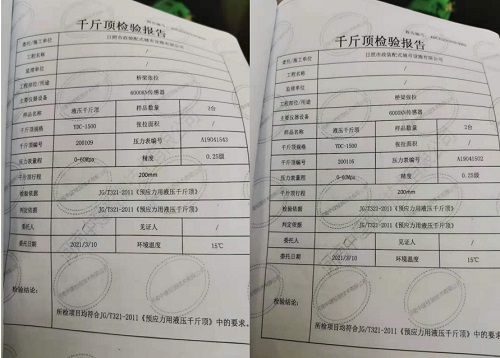 千斤顶检验报告
委托/施工单位
日照市政装配式城市设施有限公司
工程名称 /
监理单位 /
工程部位/用途 桥梁张拉
主要仪器设备 6000KN传感器
样品名称 液压千斤顶 样品数量 1台
千斤顶规格 YDC-1500 张拉面积 /
千斤顶编号 200109 压力表编号 A19041543
压力表量程 0-60Mpa 精度 0.25级
千斤顶行程 200mm
检验依据 JG/T321-2011《预应力用液压千斤顶》
判定依据 JG/T321-2011《预应力用液压千斤顶》
委托人 / 见证人 /
委托日期 2021/3/10 环境温度 15℃
检验结论：
所检项目均符合JG/T321-2011《预应力用液压千斤顶》中的要求。
千斤顶检验报告
委托/施工单位
日照市政装配式城市设施有限公司
工程名称 /
监理单位 /
工程部位/用途 桥梁张拉
主要仪器设备 6000KN传感器
样品名称 液压千斤顶 样品数量 1台
千斤顶规格 YDC-1500 张拉面积 /
千斤顶编号 200116 压力表编号 A19041502
压力表量程 0-60Mpa 精度 0.25级
千斤顶行程 200mm
检验依据 JG/T321-2011《预应力用液压千斤顶》
判定依据 JG/T321-2011《预应力用液压千斤顶》
委托人 / 见证人 /
委托日期 2021/3/10 环境温度 15℃
检验结论：
所检项目均符合JG/T321-2011《预应力用液压千斤顶》中的要求